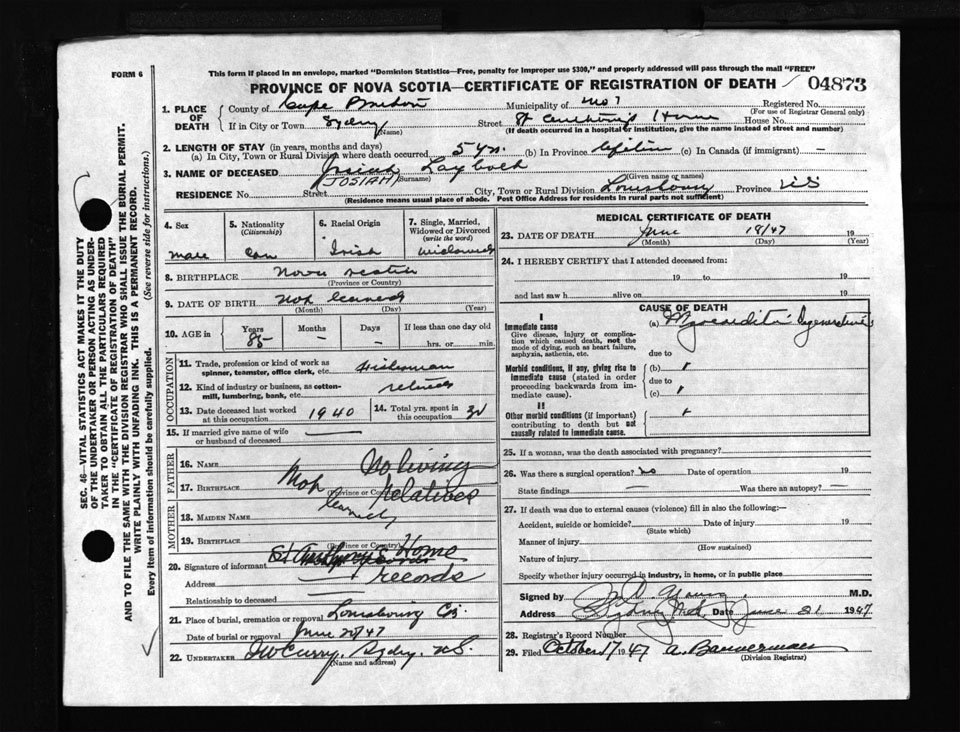 FORM 6
This form if placed in an envelope, marked "Dominion Statistics—Free, penalty for improper use $300," and properly addressed will pass through the mail "FREE"
PROVINCE OF NOVA SCOTIA—CERTIFICATE OF REGISTRATION OF DEATH 04873
1. PLACE OF DEATH
County of Cape Breton Municipality of No 7 Registered No.
(For use of Registrar General only)
If in City or Town Sydney Street St Anthony's Home House No.
(Name) (If death occurred in a hospital or institution, give the name instead of street and number)
2. LENGTH OF STAY (in years, months and days)
(a) In City, Town or Rural Division where death occurred 5 yrs. (b) In Province lifetime (c) In Canada (if immigrant) —
3. NAME OF DECEASED Josiah Laybolt
(JOSIAH) (Surname) (Given name or names)
RESIDENCE No. Street City, Town or Rural Division Louisbourg Province NS
(Residence means usual place of abode. Post Office Address for residents in rural parts not sufficient)
4. Sex male
5. Nationality (Citizenship) Can
6. Racial Origin Irish
7. Single, Married, Widowed or Divorced (write the word) widowed
8. BIRTHPLACE Nova Scotia
(Province or Country)
9. DATE OF BIRTH Not learned
(Month) (Day) (Year)
10. AGE in Years 85 Months – Days – If less than one day old
hrs. or min.
OCCUPATION
11. Trade, profession or kind of work as spinner, teamster, office clerk, etc. Fisherman
12. Kind of industry or business, as cotton-mill, lumbering, bank, etc. retired
13. Date deceased last worked at this occupation 1940
14. Total yrs. spent in this occupation
15. If married give name of wife or husband of deceased —
FATHER
16. Name No living
17. Birthplace Not relatives
(Province or Country)
learned
MOTHER
18. Maiden Name
19. Birthplace
(Province or Country)
20. Signature of informant St Anthony's Home
records
Address
Relationship to deceased
21. Place of burial, cremation or removal Louisbourg
Date of burial or removal June 20/47
22. UNDERTAKER Curry, Sydney. N.S.
(Name and address)
MEDICAL CERTIFICATE OF DEATH
23. DATE OF DEATH June 18/47 19
(Month) (Day) (Year)
24. I HEREBY CERTIFY that I attended deceased from:
19 to 19
and last saw h alive on 19
CAUSE OF DEATH
I
Immediate cause
Give disease, injury or complication which caused death, not the mode of dying, such as heart failure, asphyxia, asthenia, etc.
(a) Myocarditis Degenerative
due to
Morbid conditions, if any, giving rise to immediate cause (stated in order proceeding backwards from immediate cause).
(b)
due to
(c)
II
Other morbid conditions (if important) contributing to death but not causally related to immediate cause.
25. If a woman, was the death associated with pregnancy?
26. Was there a surgical operation? no Date of operation 19
State findings — Was there an autopsy? —
27. If death was due to external causes (violence) fill in also the following:—
Accident, suicide or homicide? Date of injury 19
(State which)
Manner of injury
(How sustained)
Nature of injury
Specify whether injury occurred in industry, in home, or in public place
Signed by Young M.D.
Address Sydney N.S. Date June 21 1947
28. Registrar's Record Number
29. Filed October 1947 A. Bannerman
(Division Registrar)
SEC. 46—VITAL STATISTICS ACT MAKES IT THE DUTY
OF THE UNDERTAKER OR PERSON ACTING AS UNDER-
TAKER TO OBTAIN ALL THE PARTICULARS REQUIRED
IN THE "CERTIFICATE OF REGISTRATION OF DEATH"
AND TO FILE THE SAME WITH THE DIVISION REGISTRAR WHO SHALL ISSUE THE BURIAL PERMIT.
WRITE PLAINLY WITH UNFADING INK. THIS IS A PERMANENT RECORD.
Every item of information should be carefully supplied. (See reverse side for instructions.)